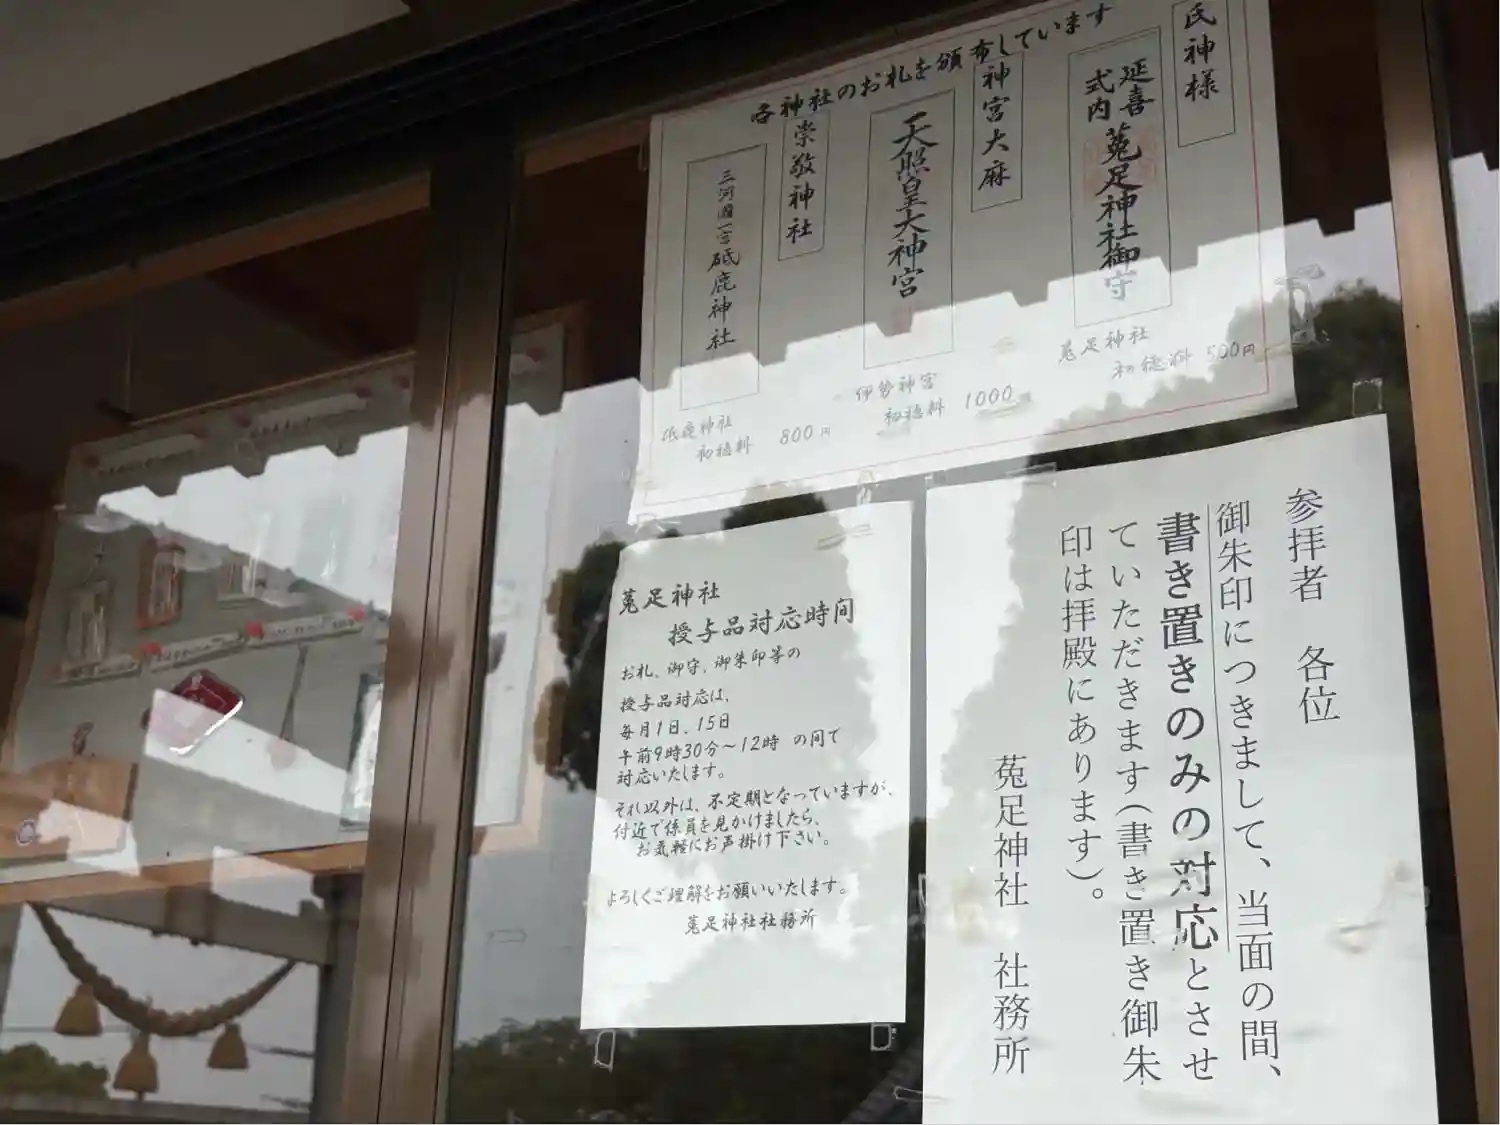 各神社のお札を頒布しています
氏神様
延喜式内
菟足神社御守
菟足神社
初穂料 500円
神宮大麻
天照皇大神宮
伊勢神宮
初穂料 1000
崇敬神社
三河國一宮砥鹿神社
砥鹿神社
初穂料 800円
菟足神社
授与品対応時間
お札、御守、御朱印等の
授与品対応は、
毎月1日、15日
午前9時30分～12時 の間で
対応いたします。
それ以外は、不定期となっていますが、
付近で係員を見かけましたら、
お気軽にお声掛け下さい。
よろしくご理解をお願いいたします。
菟足神社社務所
参拝者 各位
御朱印につきまして、当面の間、
書き置きのみの対応とさせ
ていただきます(書き置き御朱
印は拝殿にあります)。
菟足神社 社務所